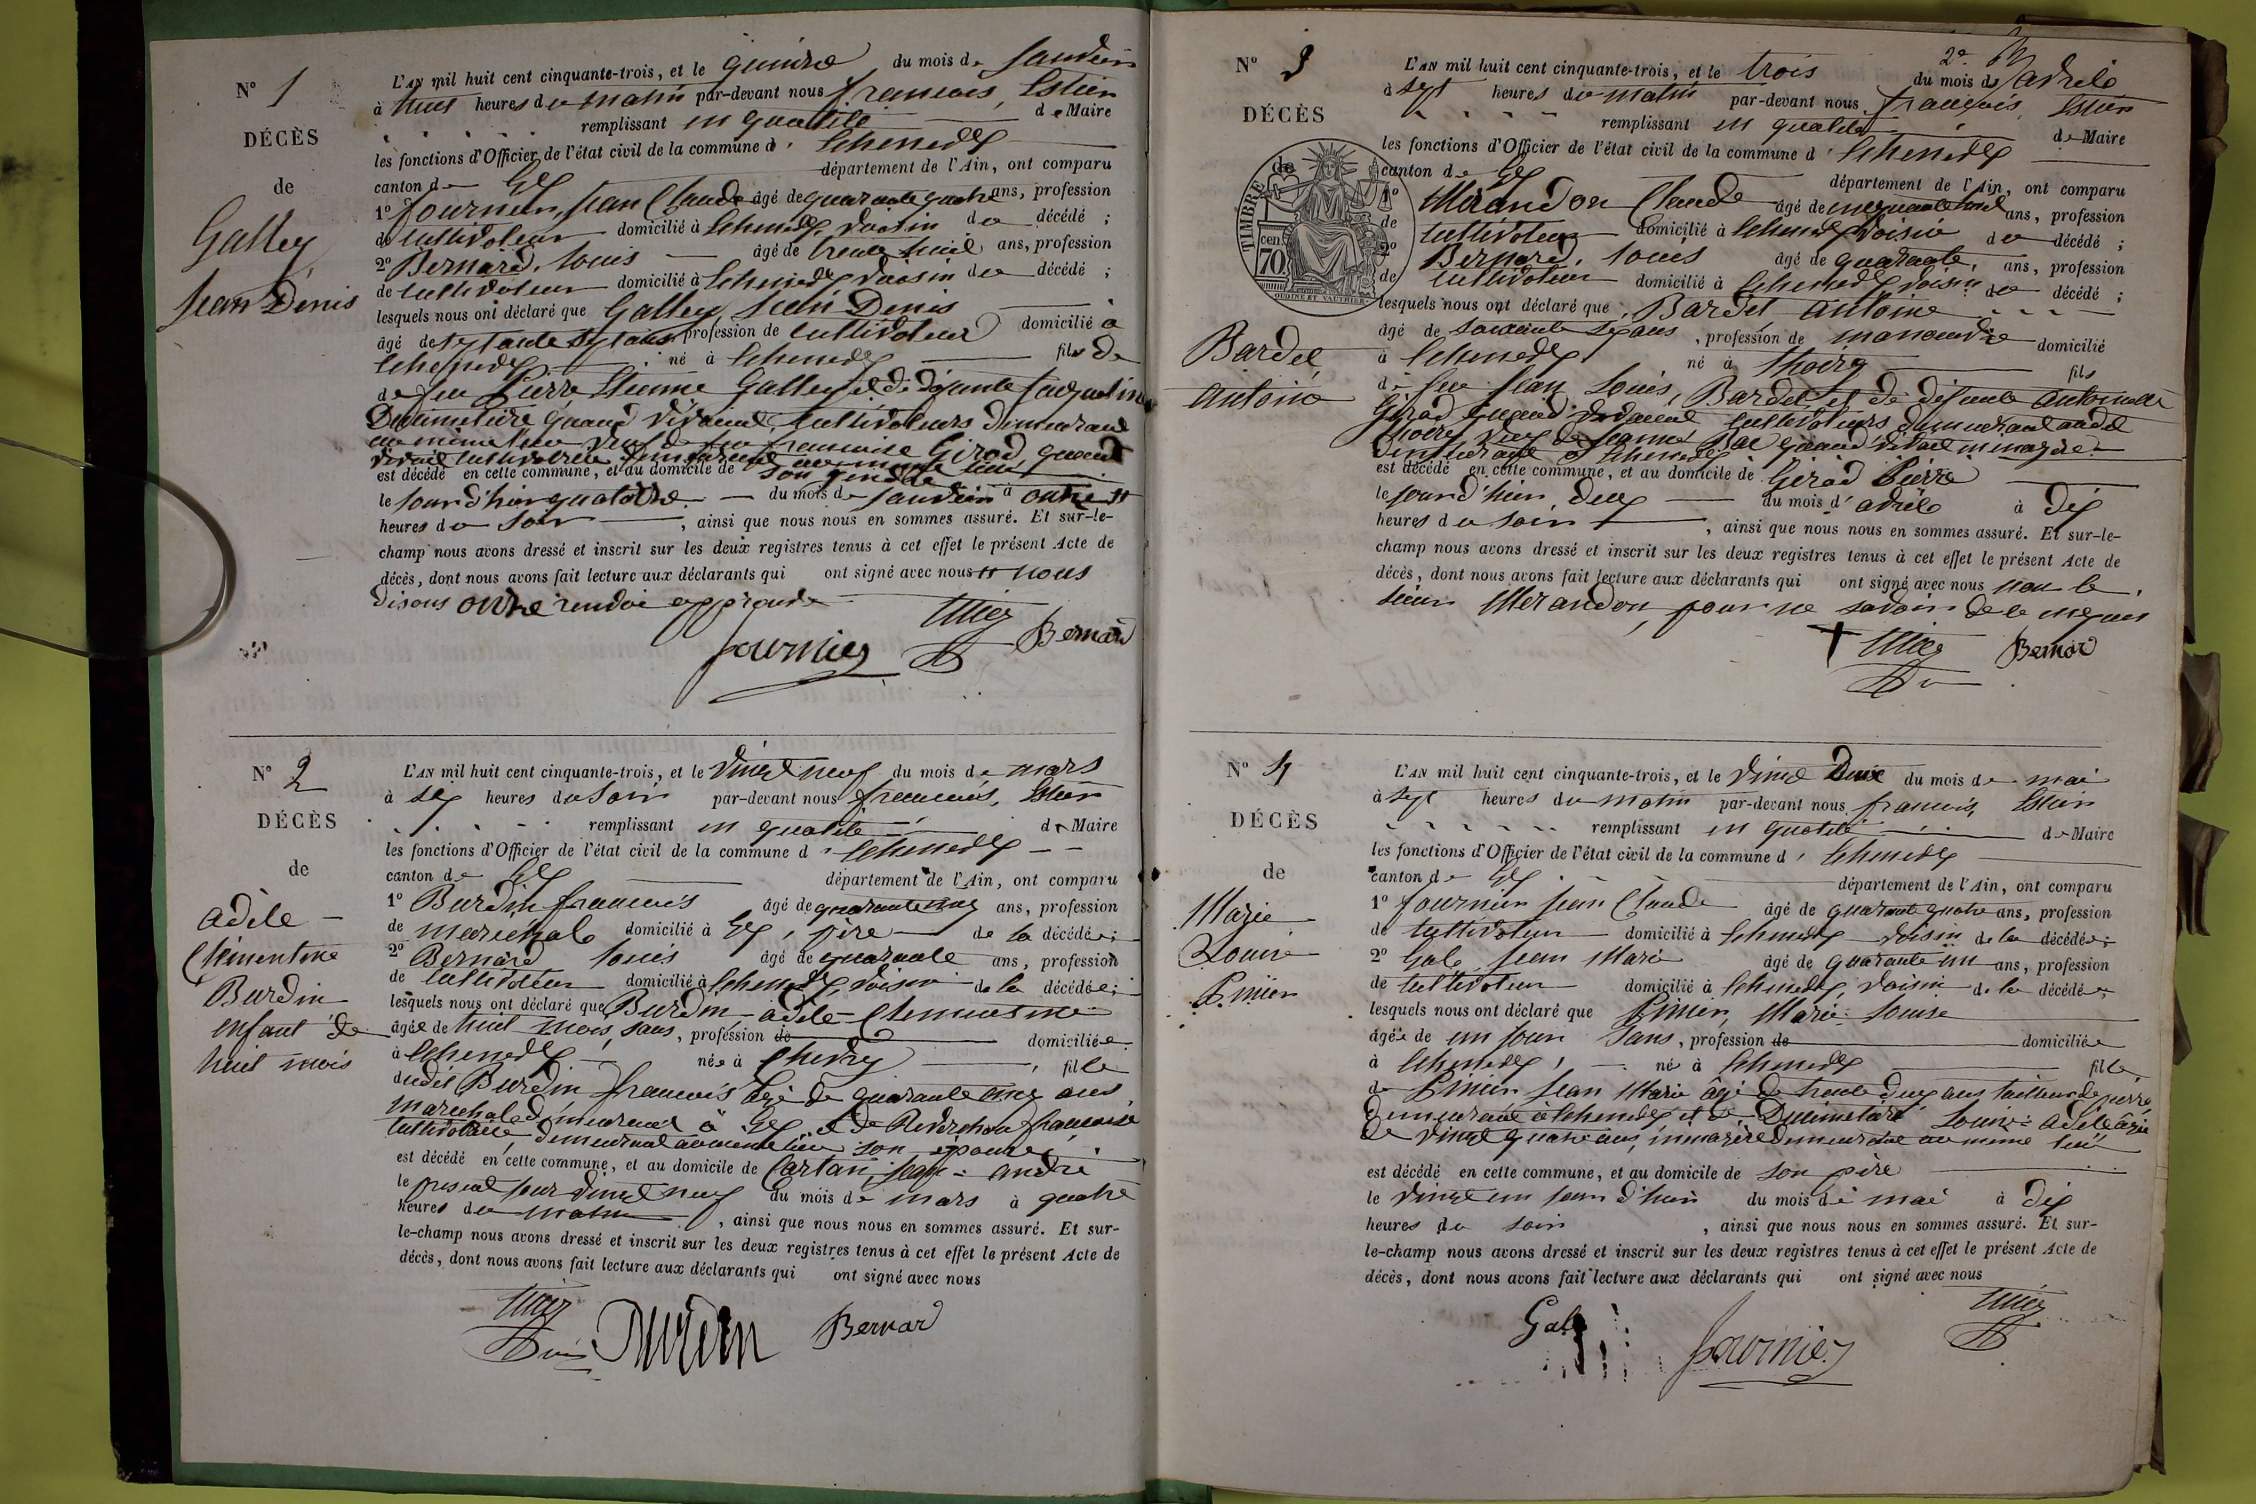 N° 1
DÉCÈS
de
Galley
Jean Denis
L'AN mil huit cent cinquante-trois, et le quinze du mois de Janvier
à huit heures du matin par-devant nous françois, Estier
remplissant en qualité de Maire
les fonctions d'Officier de l'état civil de la commune d' Echenevex
canton de Gex département de l'Ain, ont comparu
1° fournier, Jean Claude âgé de quarante quatre ans, profession
de cultivateur domicilié à Echenevex voisin du décédé ;
2° Bernard, Louis âgé de trente huit ans, profession
de cultivateur domicilié à Echenevex voisin du décédé ;
lesquels nous ont déclaré que Galley, Jean Denis
âgé de septante sept ans, profession de cultivateur domicilié à
Echenevex né à Echenevex fils de
de feu Pierre Etienne Galley et de défunte Jacqueline
Ducimetière quand vivaient cultivateurs demeurant
au même lieu veuf de feu francoise Girod, quand
vivait cultivatrice demeurant au même lieu
est décédé en cette commune, et au domicile de son gendre
le jour d'hier quatorze du mois de janvier à onze
heures du soir , ainsi que nous nous en sommes assuré. Et sur-le-
champ nous avons dressé et inscrit sur les deux registres tenus à cet effet le présent Acte de
décès, dont nous avons fait lecture aux déclarants qui ont signé avec nous nous
disons onze renvoi approuvé
fournier Bernard
N° 2
DÉCÈS
de
adèle
Clémentine
Burdin
enfant de
huit mois
L'AN mil huit cent cinquante-trois, et le vingt neuf du mois de mars
à six heures du soir par-devant nous francois, Estier
remplissant en qualité de Maire
les fonctions d'Officier de l'état civil de la commune d' Echenevex
canton de Gex département de l'Ain, ont comparu
1° Burdin francois âgé de quarante cinq ans, profession
de marechal domicilié à Gex, père de la décédée ;
2° Bernard Louis âgé de quarante ans, profession
de cultivateur domicilié à Echenevex, voisin de la décédée ;
lesquels nous ont déclaré que Burdin, adèle Clementine
âgée de huit mois, sans, profession de domiciliée
à Echenevex née à Chevry , fille
dudit Burdin francois âgé de quarante cinq ans
marechal demeurant à Gex et de Reverchon francoise
cultivatrice, demeurant au même lieu son épouse
est décédé en cette commune, et au domicile de Cartan, Jean-andré
le present jour vingt neuf du mois de mars à quatre
heures du matin , ainsi que nous nous en sommes assuré. Et sur-
le-champ nous avons dressé et inscrit sur les deux registres tenus à cet effet le présent Acte de
décès, dont nous avons fait lecture aux déclarants qui ont signé avec nous
Burdin Bernard
2e
N° 3
DÉCÈS
de
TIMBRE
cen.
70
OUDINE ET VAUTHIER
Bardet,
antoine
L'AN mil huit cent cinquante-trois, et le trois du mois d'avril
à sept heures du matin par-devant nous françois, Estier
remplissant en qualité de Maire
les fonctions d'Officier de l'état civil de la commune d' Echenevex
canton de Gex département de l'Ain, ont comparu
1° Mérandon Claude âgé de cinquante huit ans, profession
de cultivateur domicilié à Echenevex voisin du décédé ;
2° Bernard, Louis âgé de quarante, ans, profession
de cultivateur domicilié à Echenevex, voisin du décédé ;
lesquels nous ont déclaré que, Bardet antoine
âgé de soixante six ans , profession de manoeuvre domicilié
à Echenevex né à thoiry fils
de feu Jean Louis, Bardet et de défunte antoinette
Girod quand vivaient cultivateurs demeurant audit
thoiry veuf de Jeanne Bal quand vivait menagère
demeurant à Echenevex
est décédé en cette commune, et au domicile de Girod Pierre
le jour d'hier, deux du mois d'avril à dix
heures du soir , ainsi que nous nous en sommes assuré. Et sur-le-
champ nous avons dressé et inscrit sur les deux registres tenus à cet effet le présent Acte de
décès, dont nous avons fait lecture aux déclarants qui ont signé avec nous non le
sieur Mérandon, pour ne savoir de ce requis
Bernard
N° 4
DÉCÈS
de
Marie
Louise
Pinier
L'AN mil huit cent cinquante-trois, et le vingt deux du mois de mai
à sept heures du matin par-devant nous francois, Estier
remplissant en qualité de Maire
les fonctions d'Officier de l'état civil de la commune d' Echenevex
canton de Gex département de l'Ain, ont comparu
1° fournier Jean Claude âgé de quarante quatre ans, profession
de cultivateur domicilié à Echenevex voisin de la décédée ;
2° Gale Jean Marie âgé de quarante un ans, profession
de cultivateur domicilié à Echenevex, voisin de la décédée ;
lesquels nous ont déclaré que Pinier, Marie Louise
âgée de un jour sans, profession de domiciliée
à Echenevex, né à Echenevex fille
de Pinier Jean Marie âgé de trente deux ans tailleur de pierre
demeurant à Echenevex et de Ducimetière Louise adèle âgée
de vingt quatre ans, menagère demeurant au même lieu
est décédé en cette commune, et au domicile de son père
le vingt un jour d'hier du mois de mai à dix
heures du soir , ainsi que nous nous en sommes assuré. Et sur-
le-champ nous avons dressé et inscrit sur les deux registres tenus à cet effet le présent Acte de
décès, dont nous avons fait lecture aux déclarants qui ont signé avec nous
Gale fournier